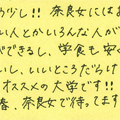 う少し!! 奈良女にはあ
い人とかいろんな人が
ができるし、学食も安く
い、いいところだらけ
オススメの大学です!!
春、奈良女で待ってます